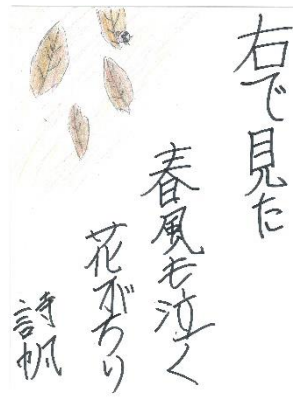 右で見た
春風も泣く
花がちり
詩帆